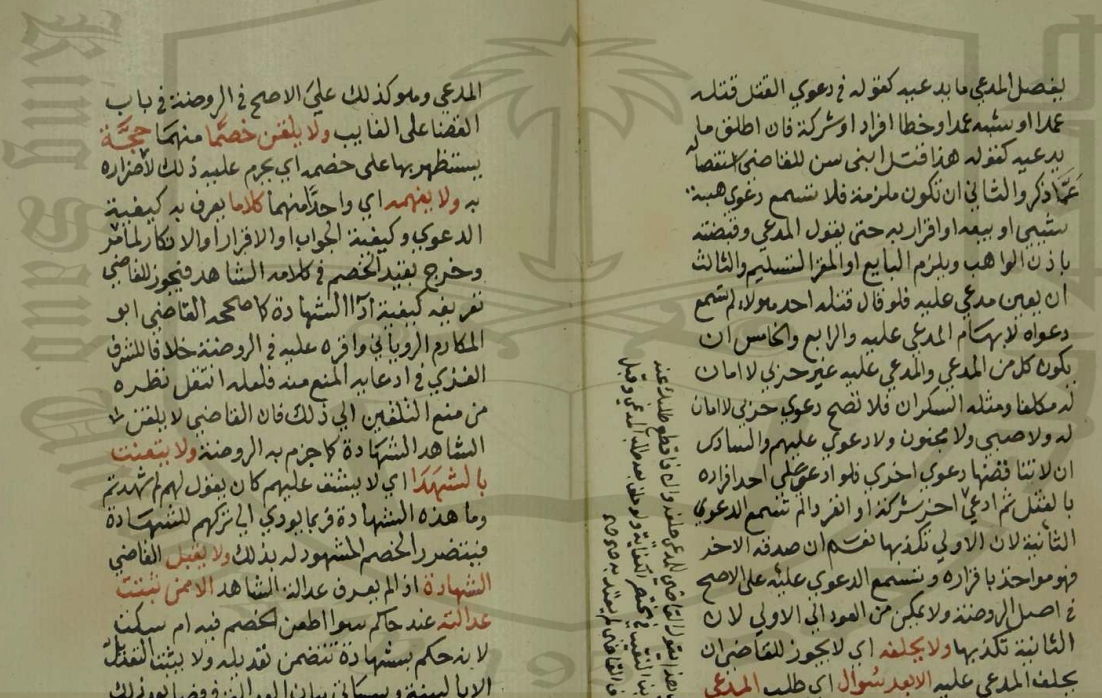 يفصل المدعي ما يدعيه كقوله في دعوي القتل قتله
عمدا او شبه عمد او خطا افراد او شركة فان اطلق ما
يدعيه كقوله هذا قتل ابنى سن للقاضي استفصاله
عما ذكر والثاني ان تكون ملزمة فلا تسمع دعوي هبة
شيى او بيعه او اقرار به حتى يقول المدعي وقبضته
باذن الواهب ويلزم البايع او المقر التسليم والثالث
ان يعين مدعي عليه فلو قال قتله احد هولاء لم تسمع
دعواه لابهام المدعي عليه والرابع والخامس ان
يكون كل من المدعي والمدعي عليه غير حربي لا امان
له مكلفا ومثله السكران فلا تصح دعوي حربي لا امان
له ولا صبي ولا مجنون ولا دعوي عليهم والسادس
ان لا تناقضها دعوي اخري فلو ادعي علي احد افراده
بالقتل ثم ادعي اخر شركة او انفرادا لم تسمع الدعوي
الثانية لان الاولي تكذبها نعم ان صدقه الاخر
فهو مواخذ باقراره وتسمع الدعوي عليه على الاصح
في اصل الروضة ولا يمكن من العود الي الاولي لان
الثانية تكذبها ولا يحلفه اي لا يجوز للقاضي ان
يحلف المدعي عليه الا بعد سوال اي طلب المدعي
المدعي وهو كذلك علي الاصح في الروضة في باب
القضا على الغايب ولا يلقن خصما منهما حجة
يستظهر بها على خصمه اي يحرم عليه ذلك لاضراره
به ولا يفهمه اي واحدا منهما كلاما يعرف به كيفية
الدعوي وكيفية الجواب او الاقرار او الانكار لما مر
وخرج بقيد الخصم في كلامه الشاهد فيجوز للقاضي
تعريفه كيفية ادآ الشهادة كما صححه القاضي ابو
المكارم الروياني واقره عليه في الروضة خلافا للشرف
الغزي في ادعايه المنع منه فلعله انتقل نظره
من منع التلقين الي ذلك فان القاضي لا يلقن
الشاهد الشهادة كما جزم به الروضة ولا يتعنت
بالشهدا اي لا يشق عليهم كان يقول لهم لم شهدتم
وما هذه الشهادة فربما يودي الي تركهم للشهادة
فيتضرر الخصم المشهود له بذلك ولا يقبل القاضي
الشهادة اذا لم يعرف عدالة الشاهد الا ممن ثبتت
عدالته عند حاكم سوا اطعن الخصم فيه ام سكت
لانه حكم بشهادة تتضمن تعديله ولا يثبت التعديل
الا بالبينة وسياتي بيان العدالة